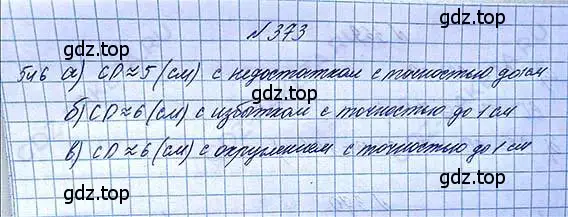 gdz.top gdz.top
№ 373
546 а) CD ≈ 5 (см) с недостатком с точностью до 1 см
gdz.top gdz.top
б) CD ≈ 6 (см) с избытком с точностью до 1 см
в) CD ≈ 6 (см) с округлением с точностью до 1 см
gdz.top gdz.top